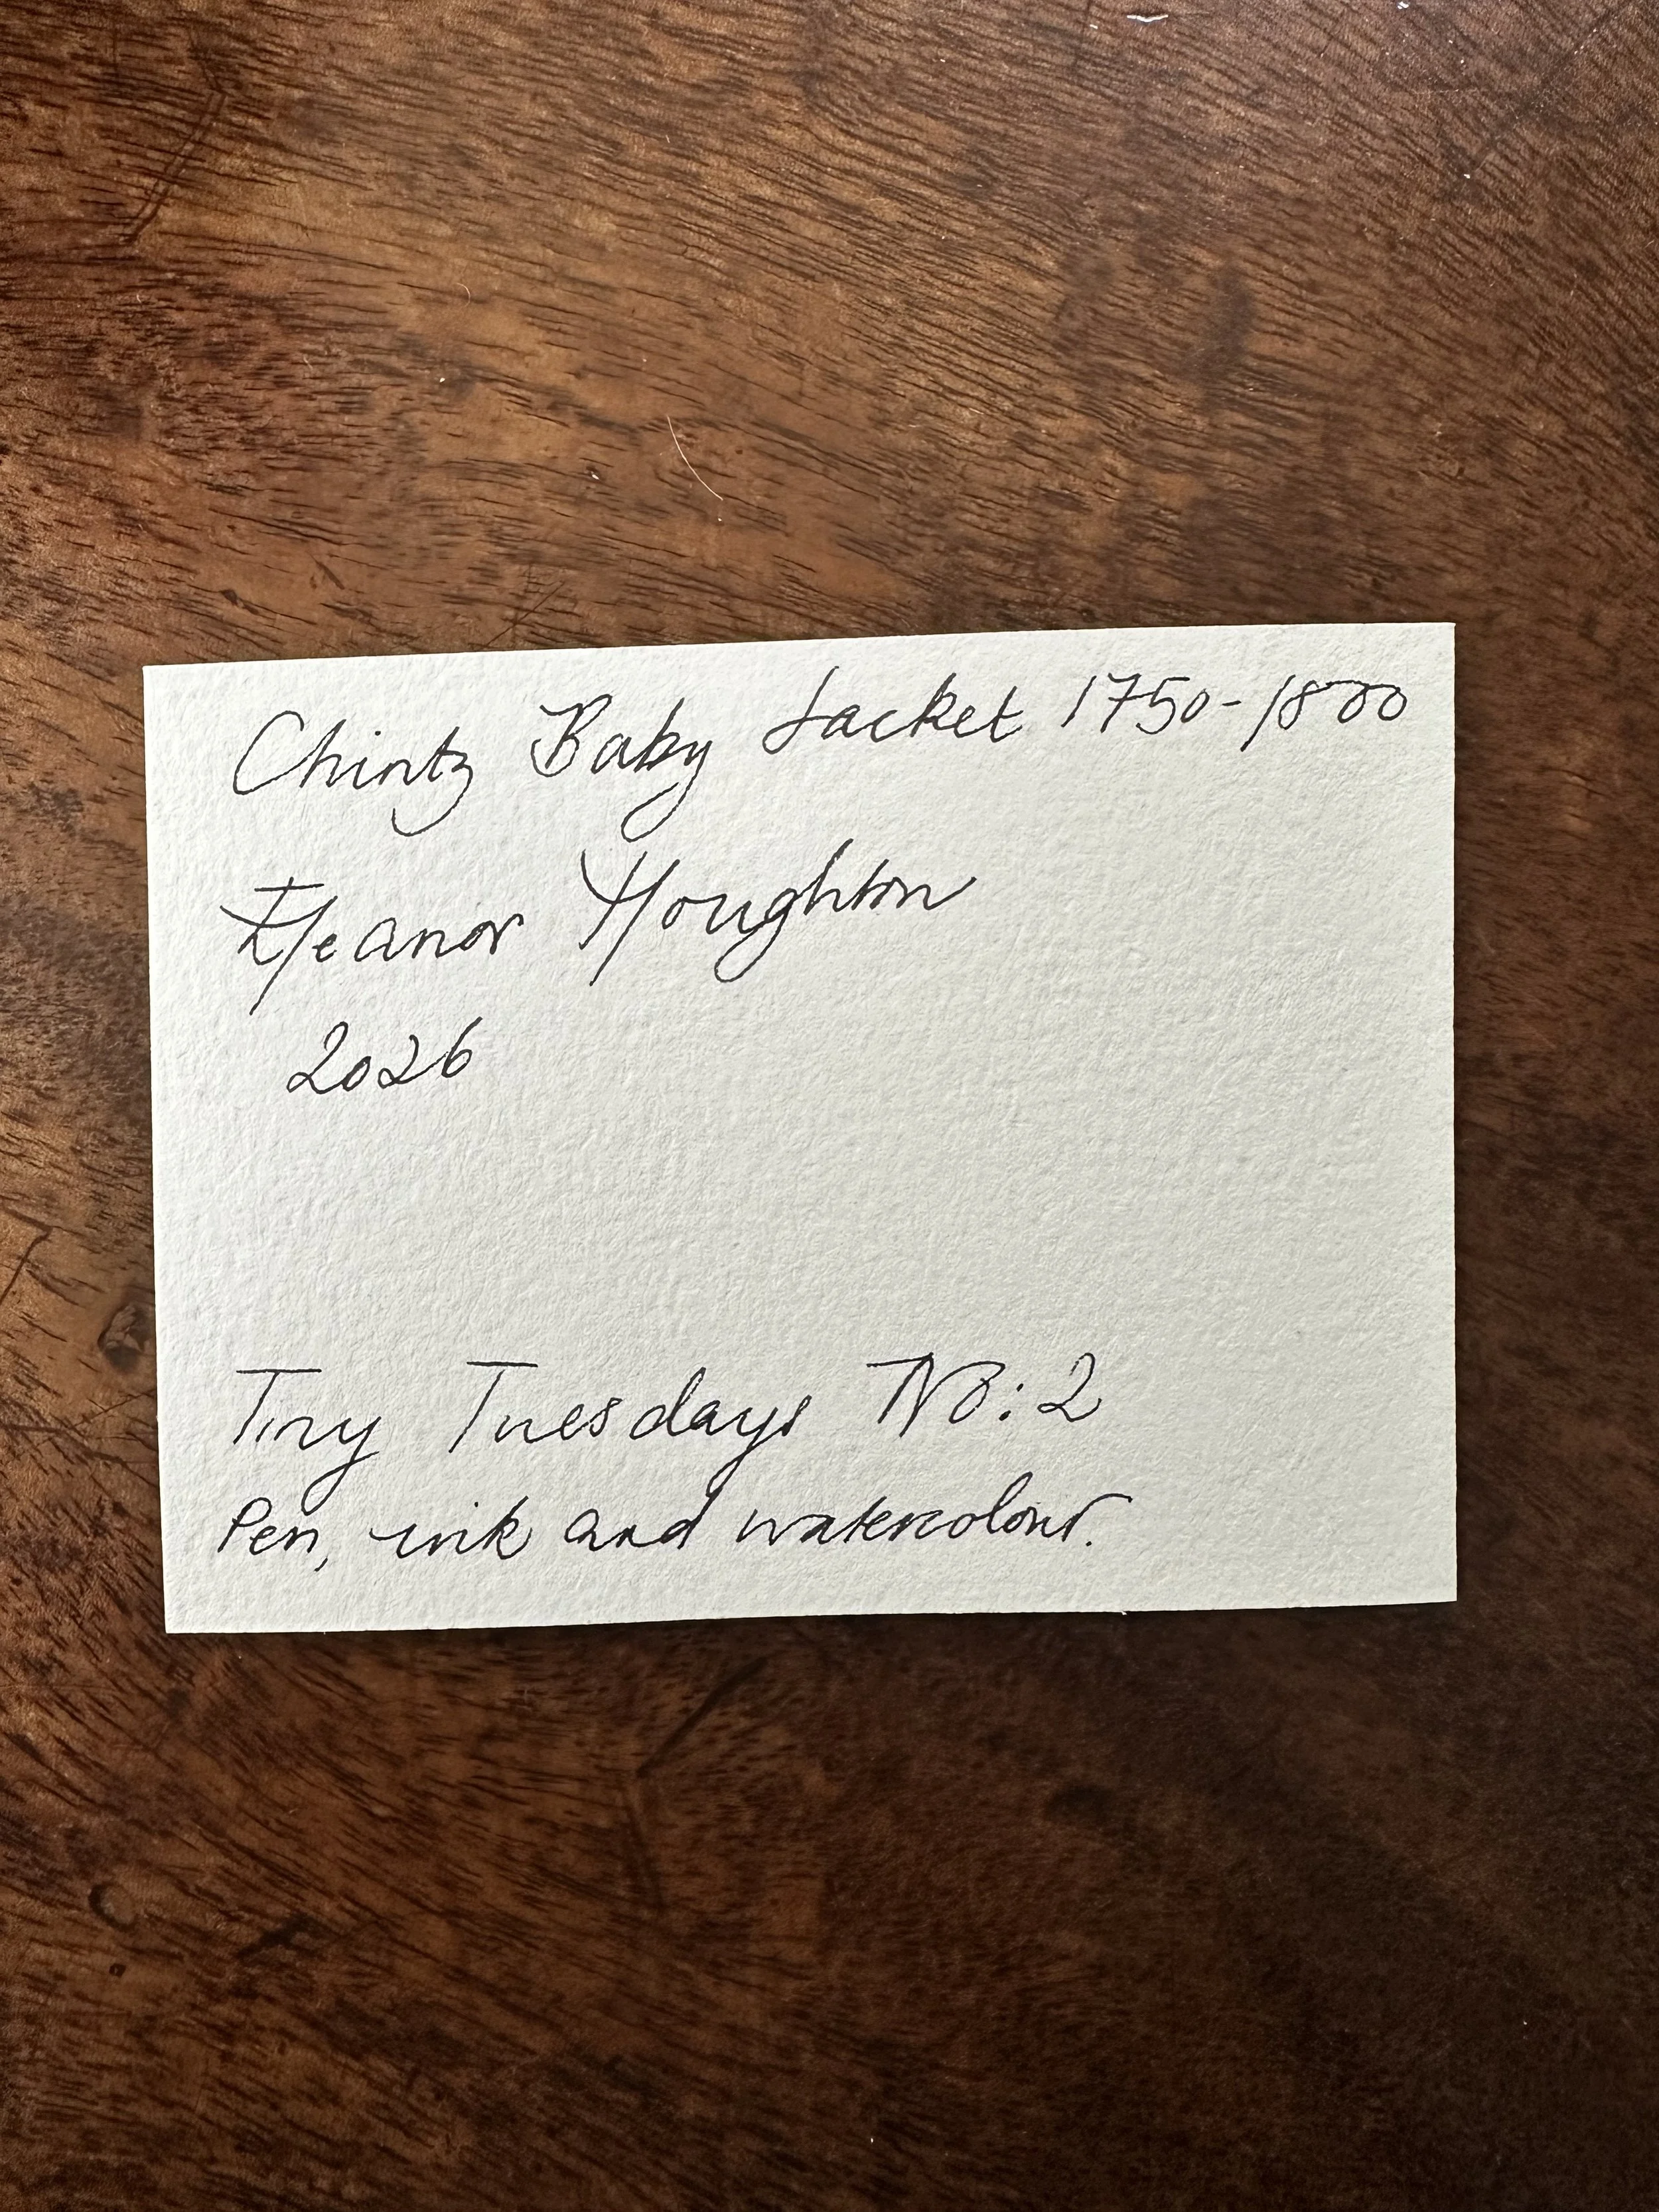 Chintz Baby Jacket 1750-1800
Eleanor Houghton
2026
Tiny Tuesdays No: 2
Pen, ink and watercolour.